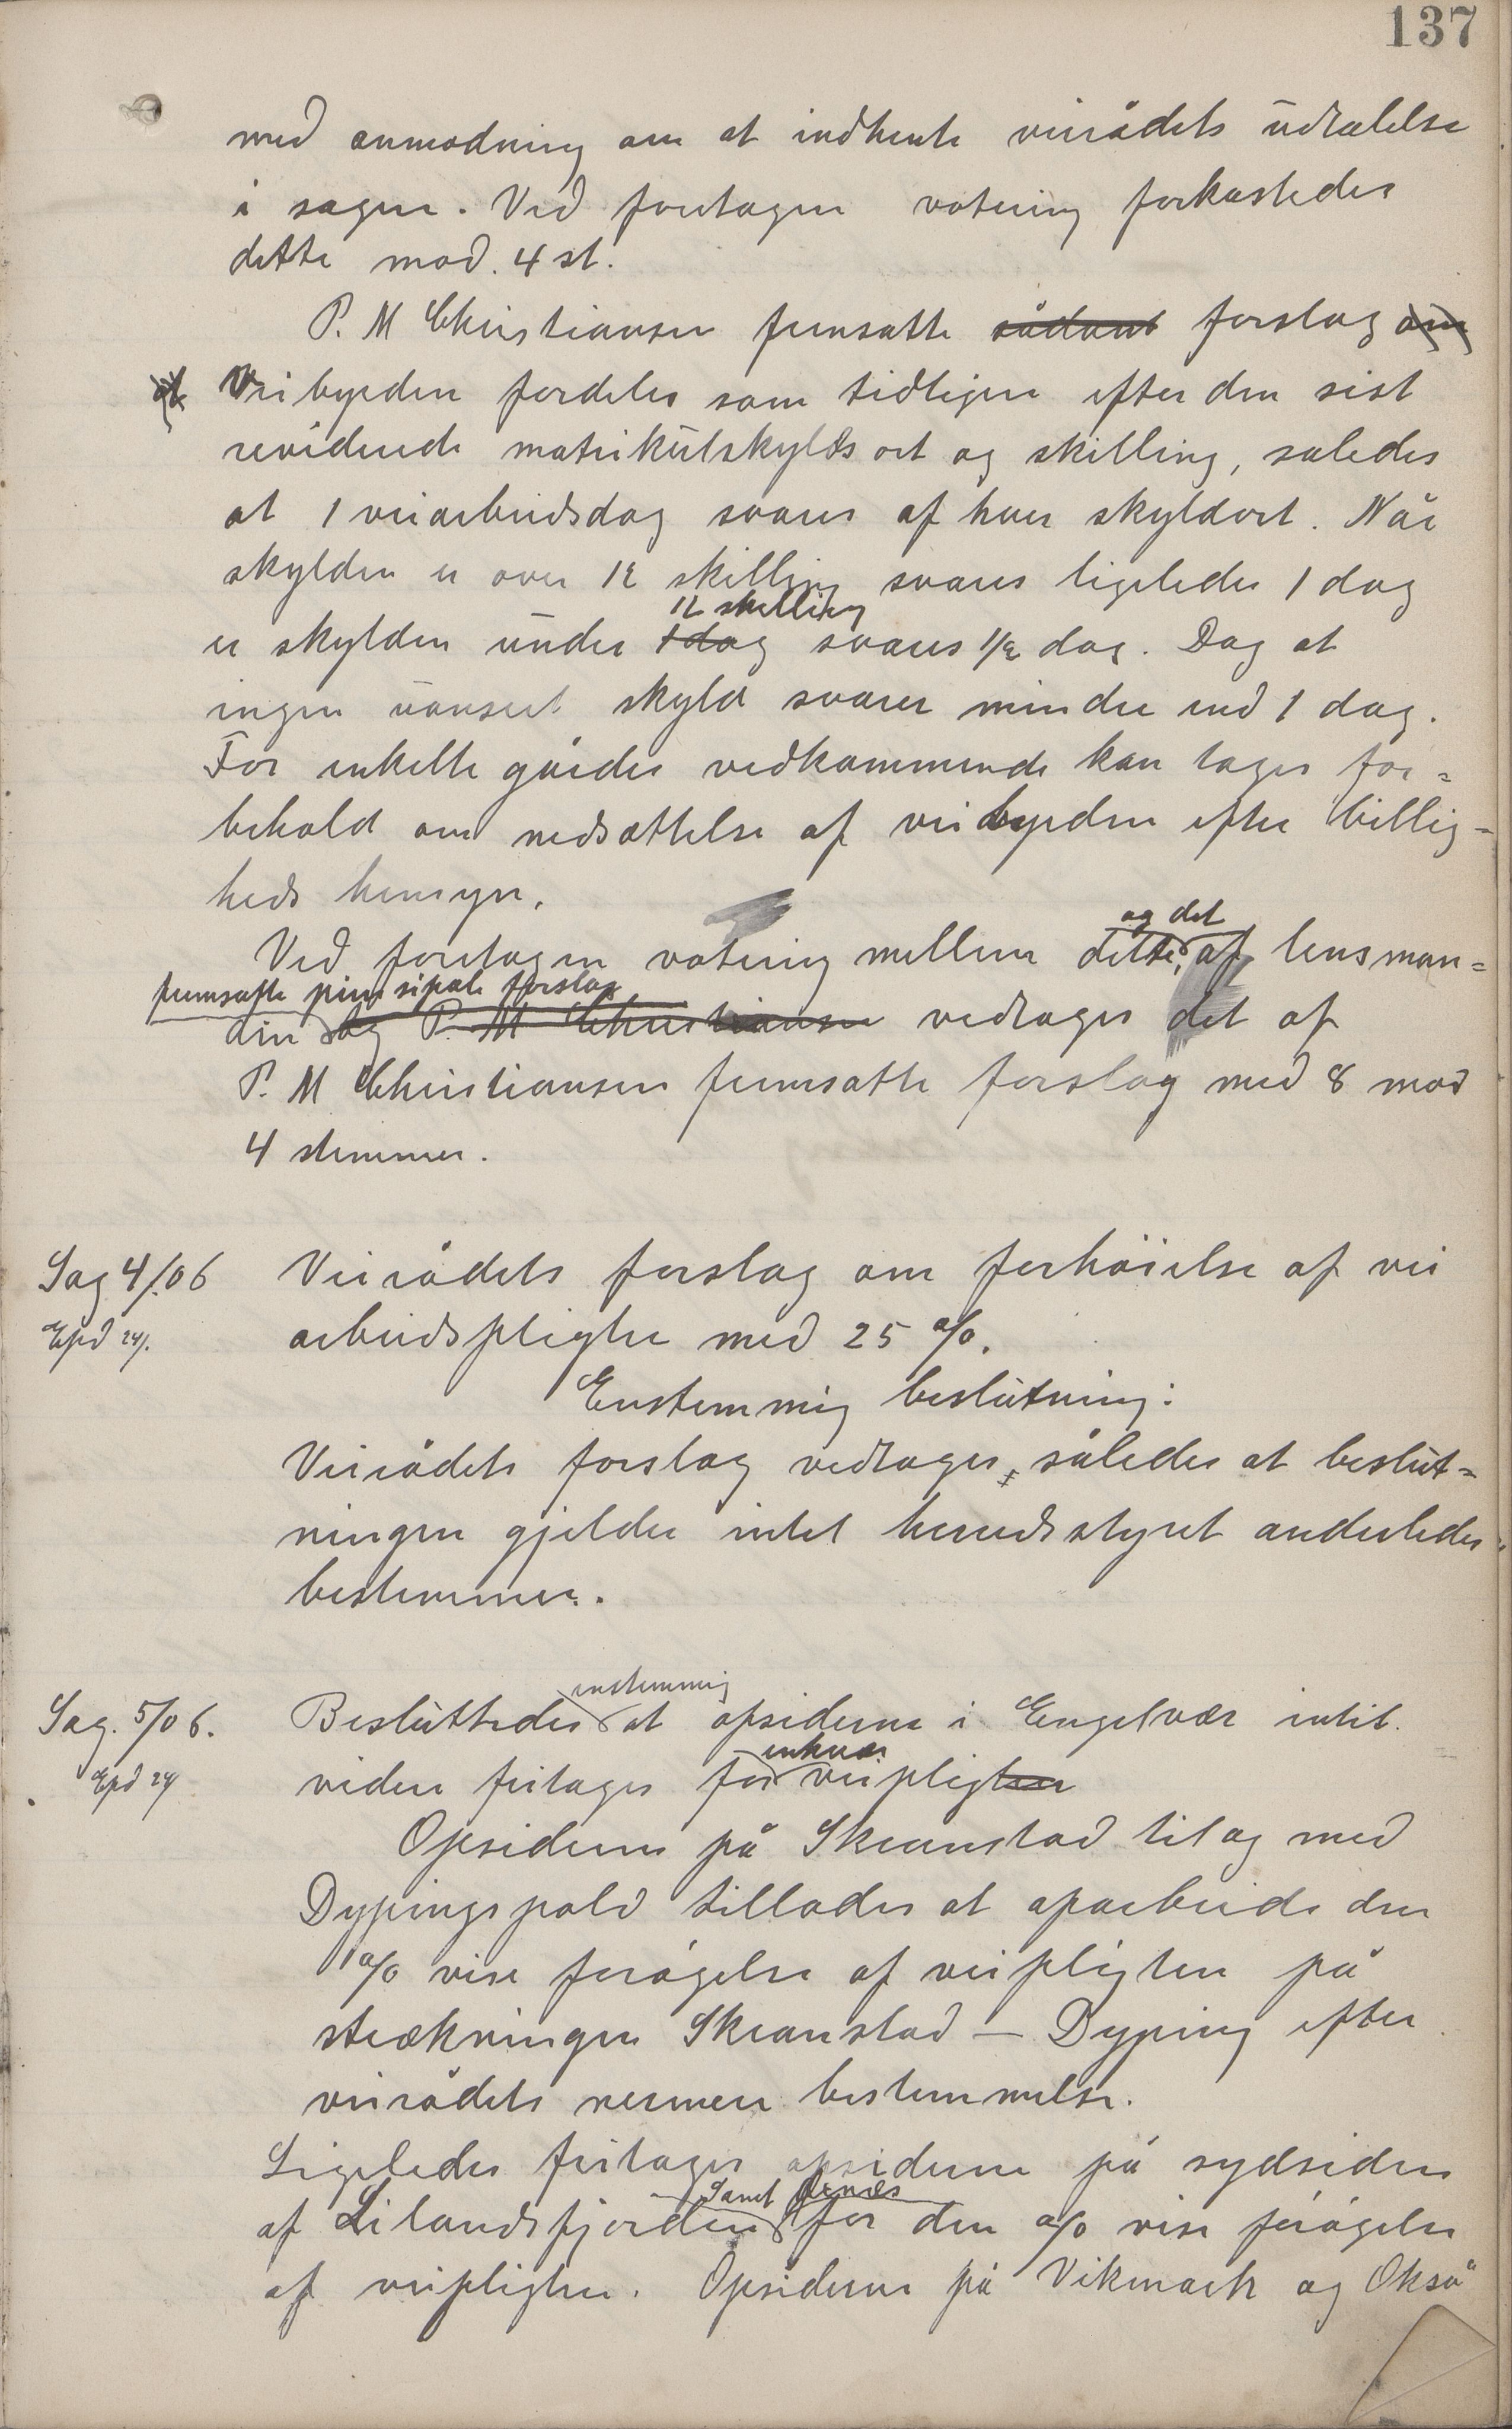 137
med anmodning om at indhente veirådets udtalelse
i sagen. Ved foretagen votering forkastedes
dette mod. 4 st.
P. M Christiansen fremsatte sådant forslag om
at Veibyrden fordeles som tidligere efter den sist
reviderede matrikulskylds ort og skilling, saledes
at 1 veiarbeidsdag svares af hver skyldort. Når
skylden er over 12 skilling svares ligeledes 1 dag
12 skilling
er skylden under 1 dag svares 1/2 dag. Dog at
ingen uanseet skyld svarer mindre end 1 dag.
For enkelte gårdes vedkommende kan tages for=
behold om nedsættelse af veibyrden efter billig=
heds hensyn.
og det
Ved foretagen votering mellem dette, af lensman=
fremsatte prinsipale forslag
den og P. M Christiansen vedtages det af
P. M Christiansen fremsatte forslag med 8 mod
4 stemmer.
Sag 4/06 Veirådets forslag om forhöielse af vei
Epd 24/. arbeidspligten med 25 %.
Enstemmig beslutning:
Veirådets forslag vedtages, således at beslut=
ningen gjelder intil herredsstyret anderledes
bestemmer.
enstemmig
Sag. 5/06. Besluttedes at opsiderne i Engelvær intil
enhver
Epd 24 videre fritages for veipligten
Opsiderne på Skranstad til og med
Dypingspold tillades at oparbeide den
% vise forøgelse af veipligten på
strækningen Skranstad — Dyping efter
veirådets nermere bestemmelse.
Ligeledes fritages opsiderne på sydsiden
Samt
af Lilandsfjorden for den % vise forøgelse
af veipligten. Opsiderne på Vikmark og Okså